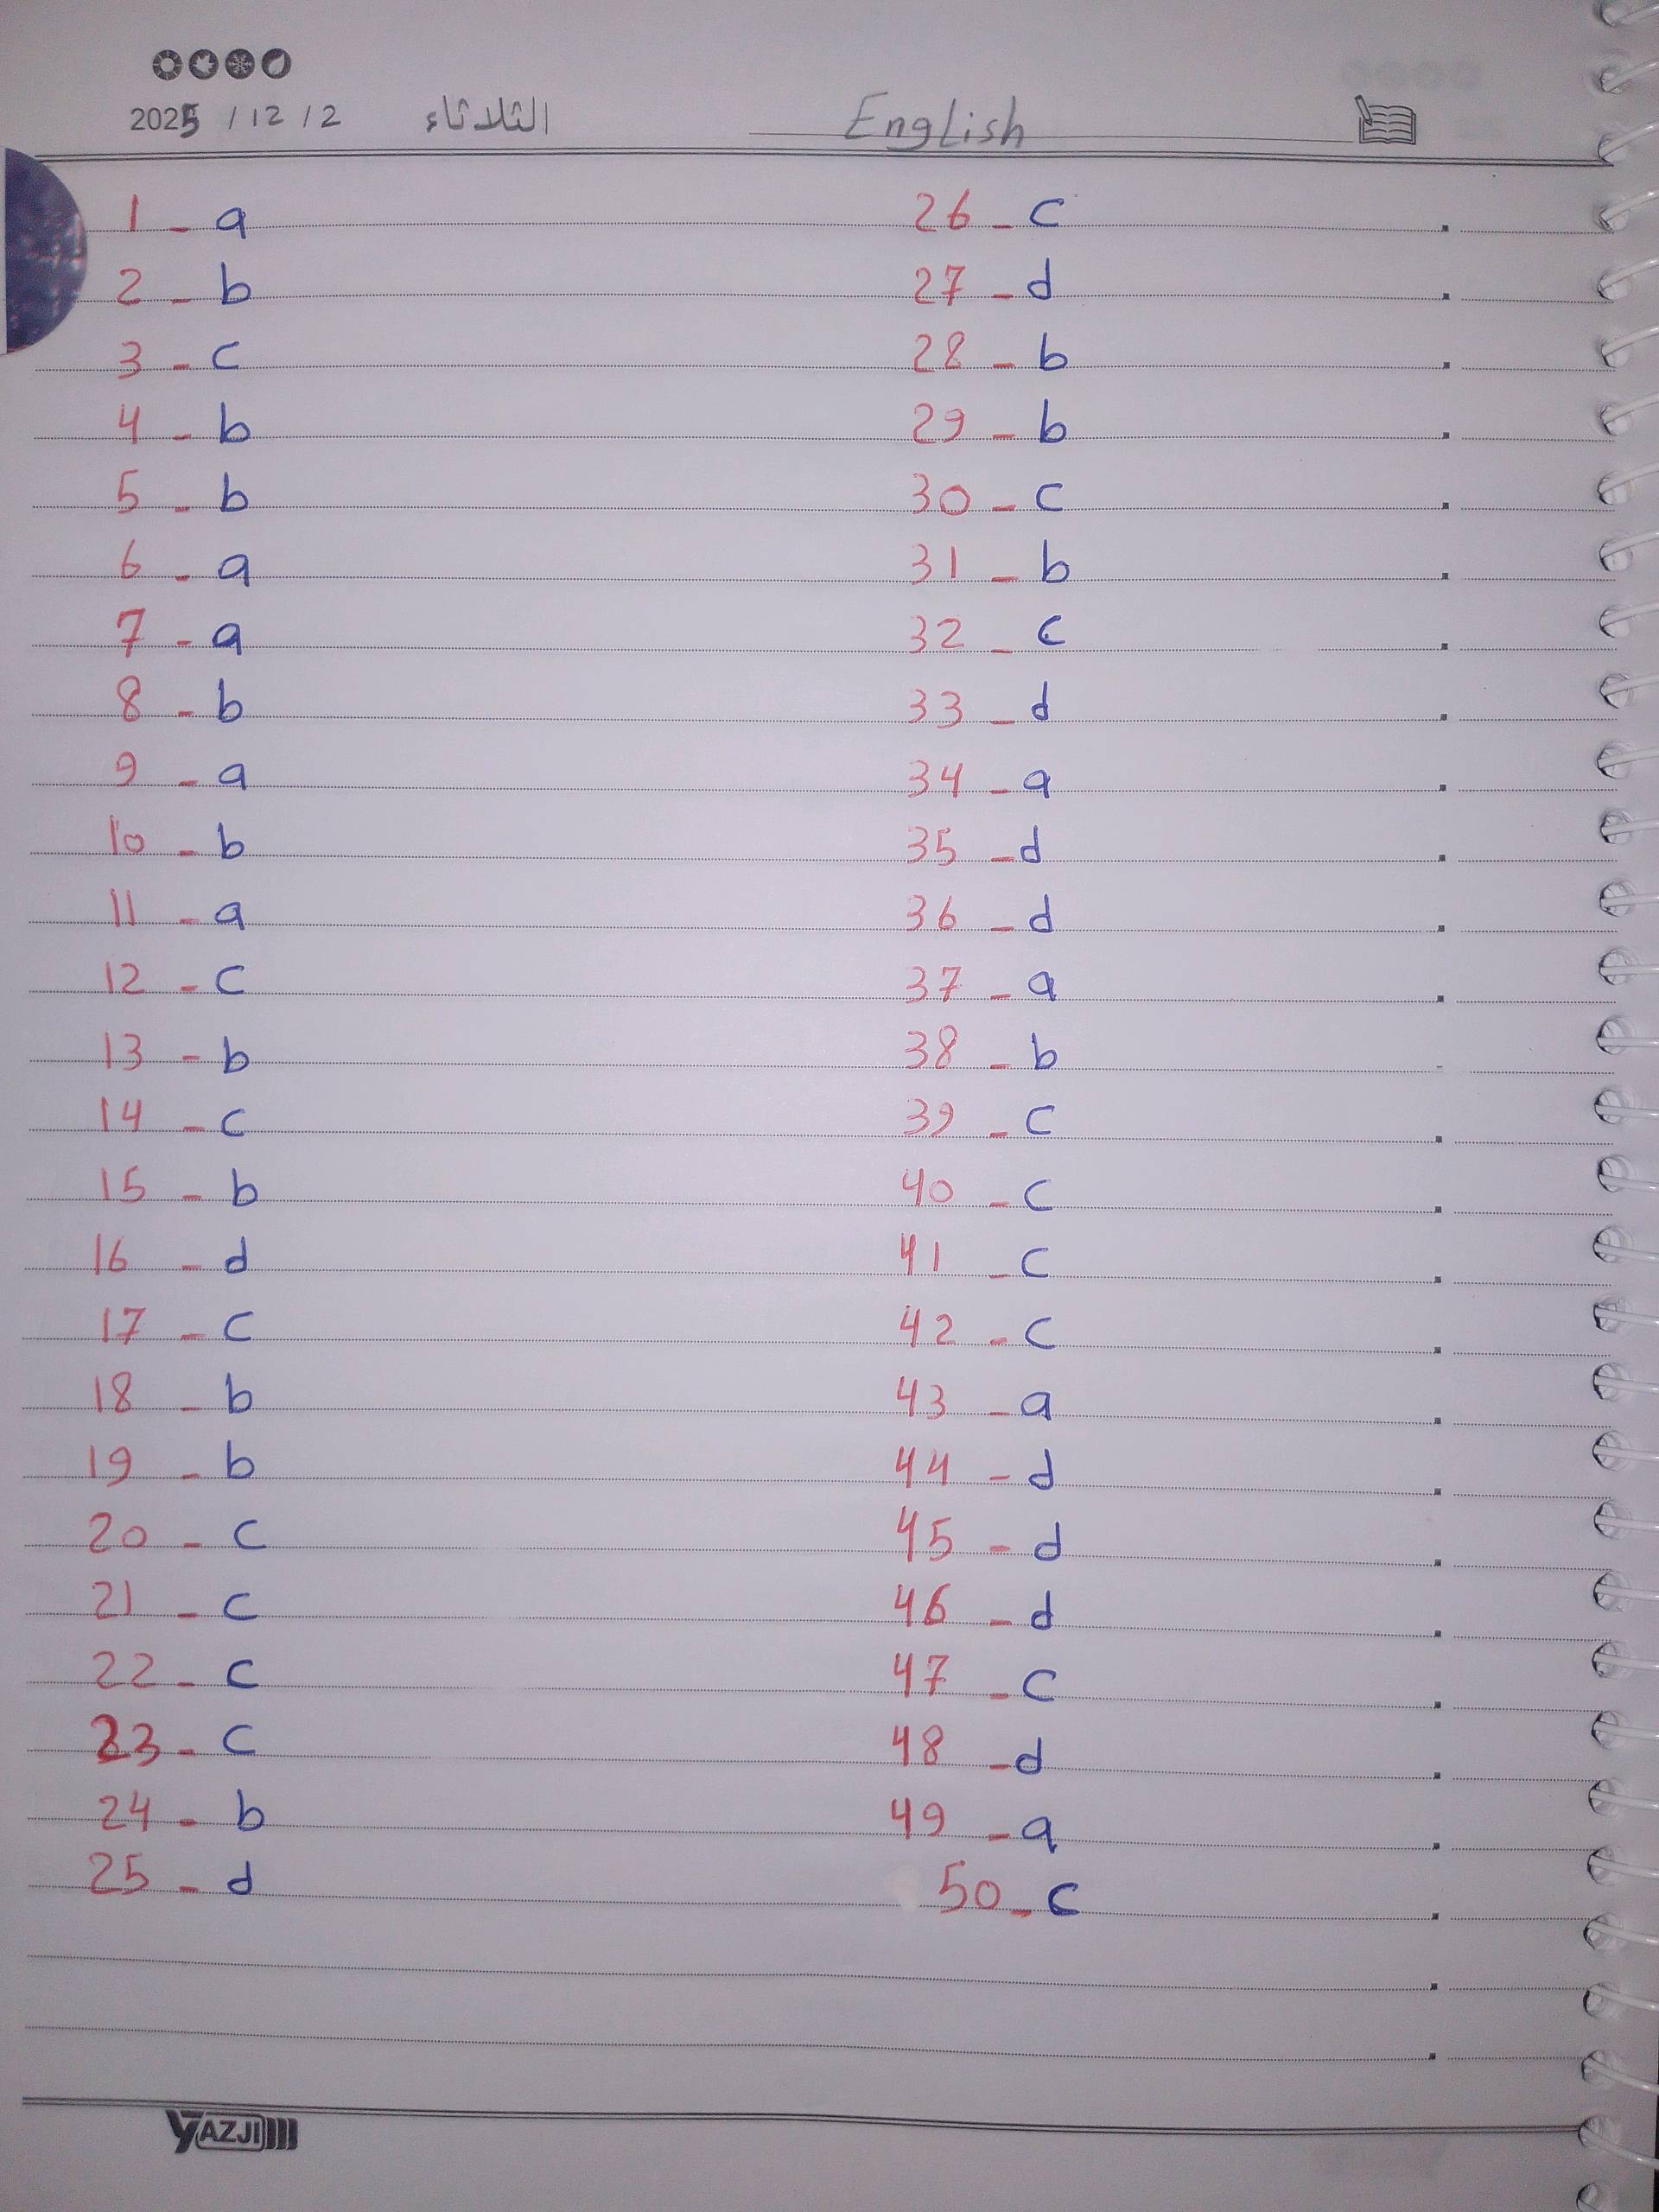 2025 / 12 / 2 الثلاثاء English
1 - a
2 - b
3 - c
4 - b
5 - b
6 - a
7 - a
8 - b
9 - a
10 - b
11 - a
12 - c
13 - b
14 - c
15 - b
16 - d
17 - c
18 - b
19 - b
20 - c
21 - c
22 - c
23 - c
24 - b
25 - d
26 - c
27 - d
28 - b
29 - b
30 - c
31 - b
32 - c
33 - d
34 - a
35 - d
36 - d
37 - a
38 - b
39 - c
40 - c
41 - c
42 - c
43 - a
44 - d
45 - d
46 - d
47 - c
48 - d
49 - a
50 - c
YAZJI